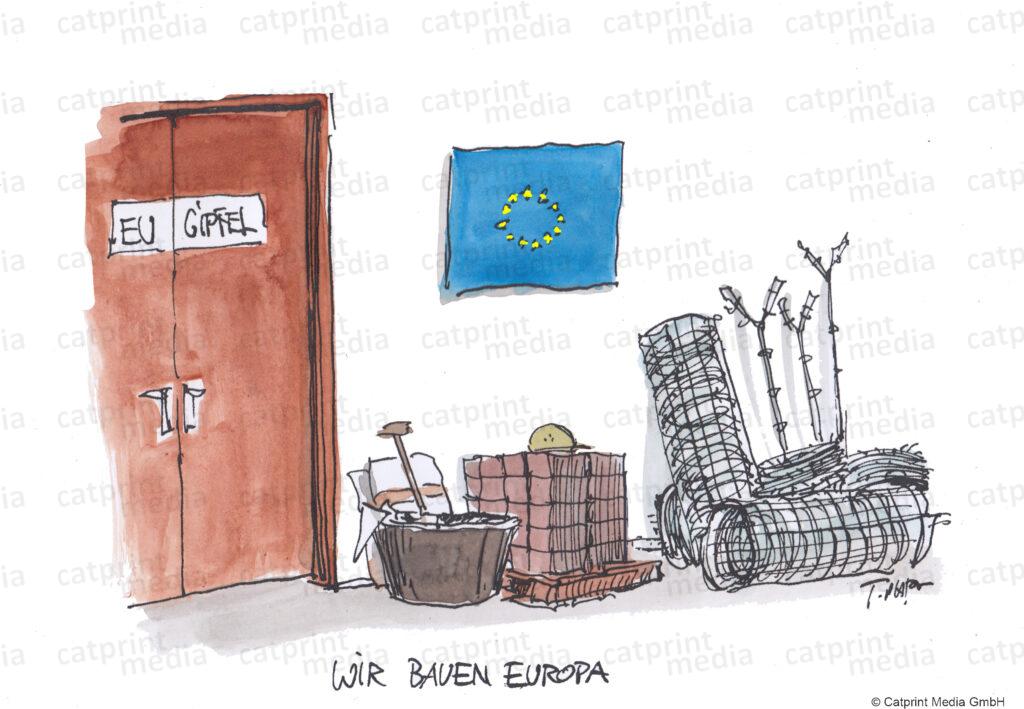 EU GIPFEL
WIR BAUEN EUROPA
© Catprint Media GmbH
catprint media